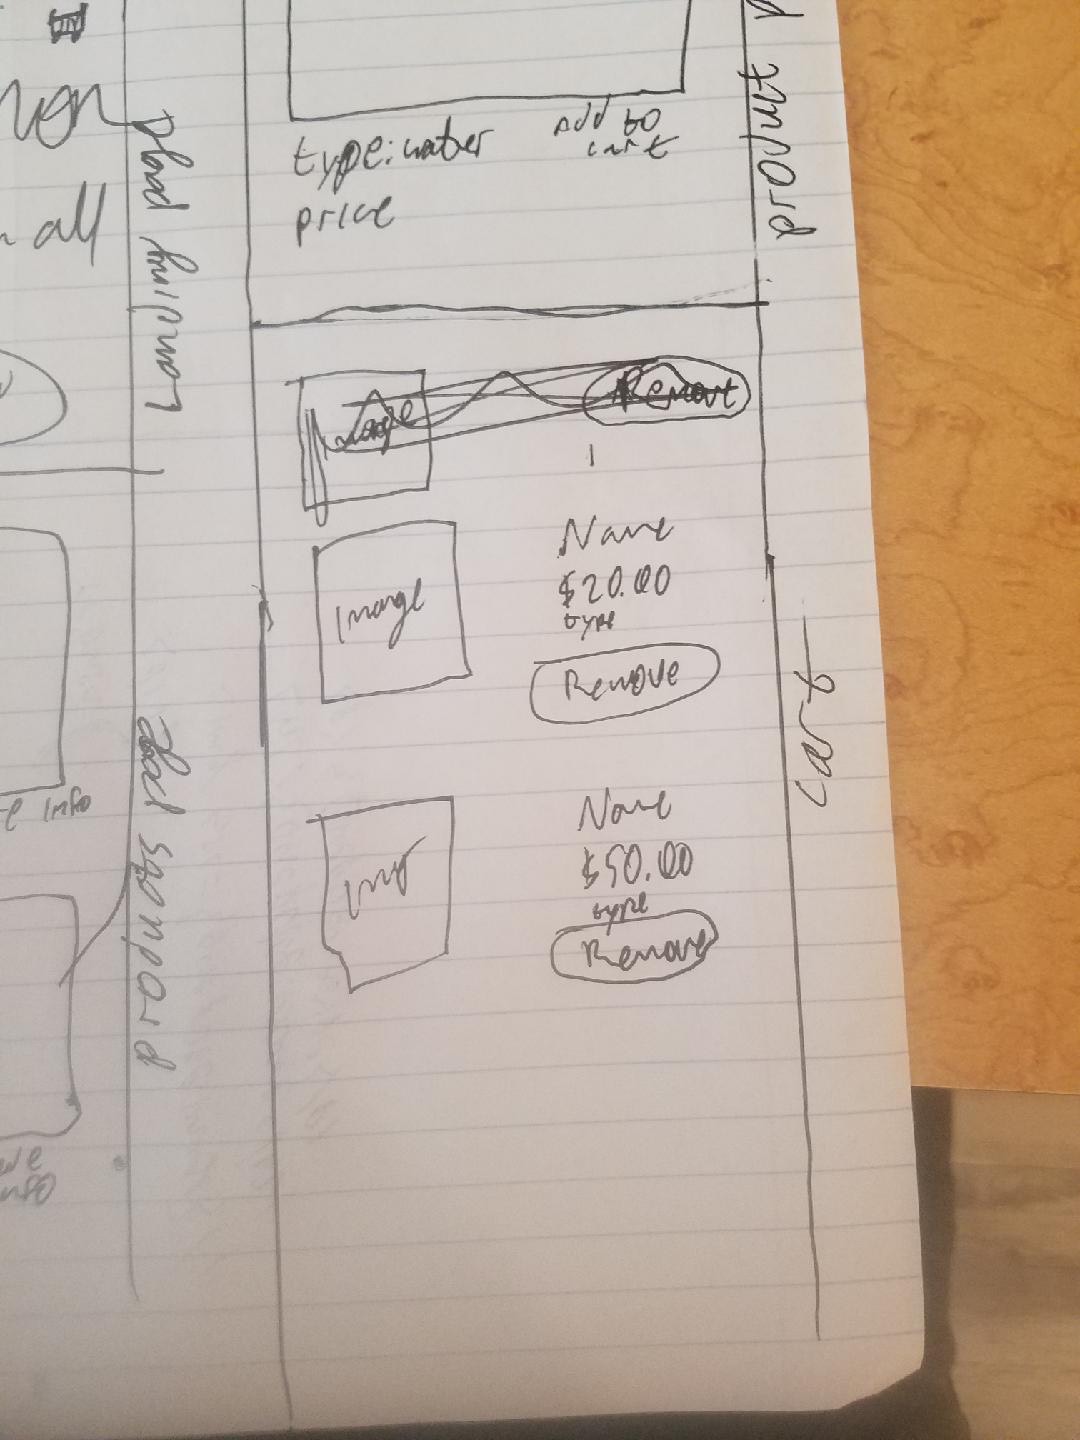 all
Landing page
e info
info
products page
type: water
price
Add to
cart
product
Image
Remove
Image
Name
$20.00
type
Remove
img
Name
$50.00
type
Remove
cart